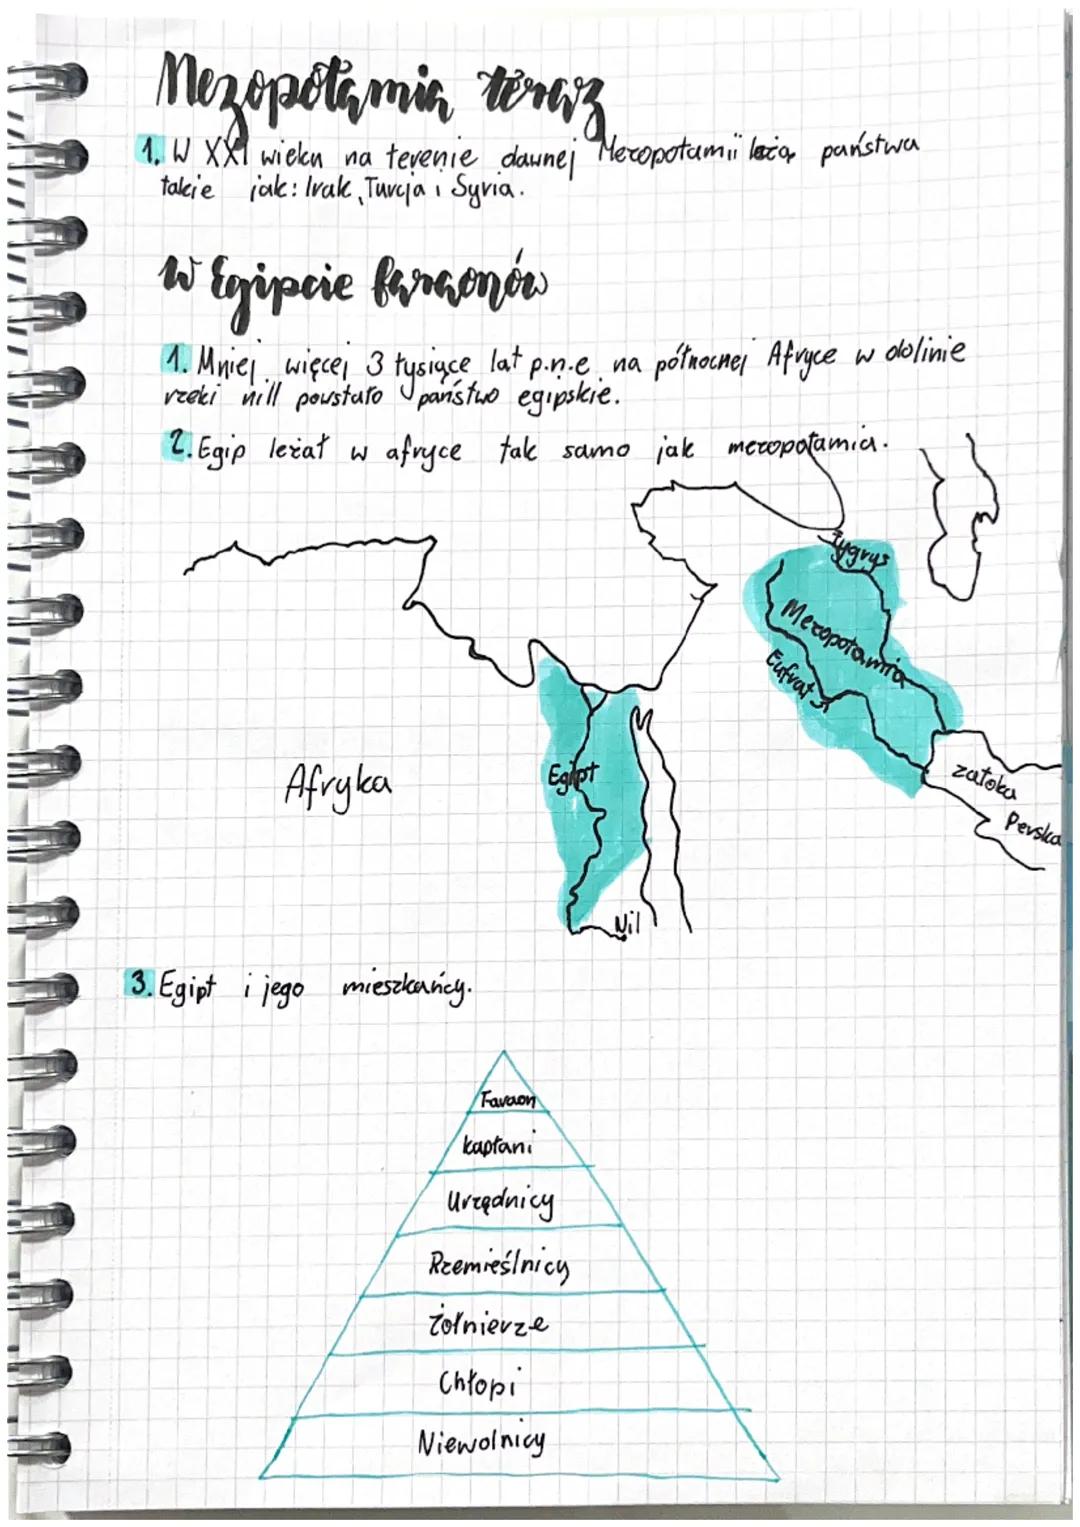 Mezopotamia teraz
1. W XXI wieku na terenie dawnej Mezopotamii leżą państwa
takie jak: Irak, Turcja i Syria.
W Egipcie faraonów
1. Mniej więcej 3 tysiące lat p.n.e na północnej Afryce w dolinie
rzeki nill powstało państwo egipskie.
2. Egip leżał w afryce tak samo jak mezopotamia.
Tygrys
Mezopotamia
Eufrat
Afryka
Egipt
zatoka
Perska
Nil
3. Egipt i jego mieszkańcy.
Faraon
kapłani
Urzędnicy
Rzemieślnicy
Żołnierze
Chłopi
Niewolnicy